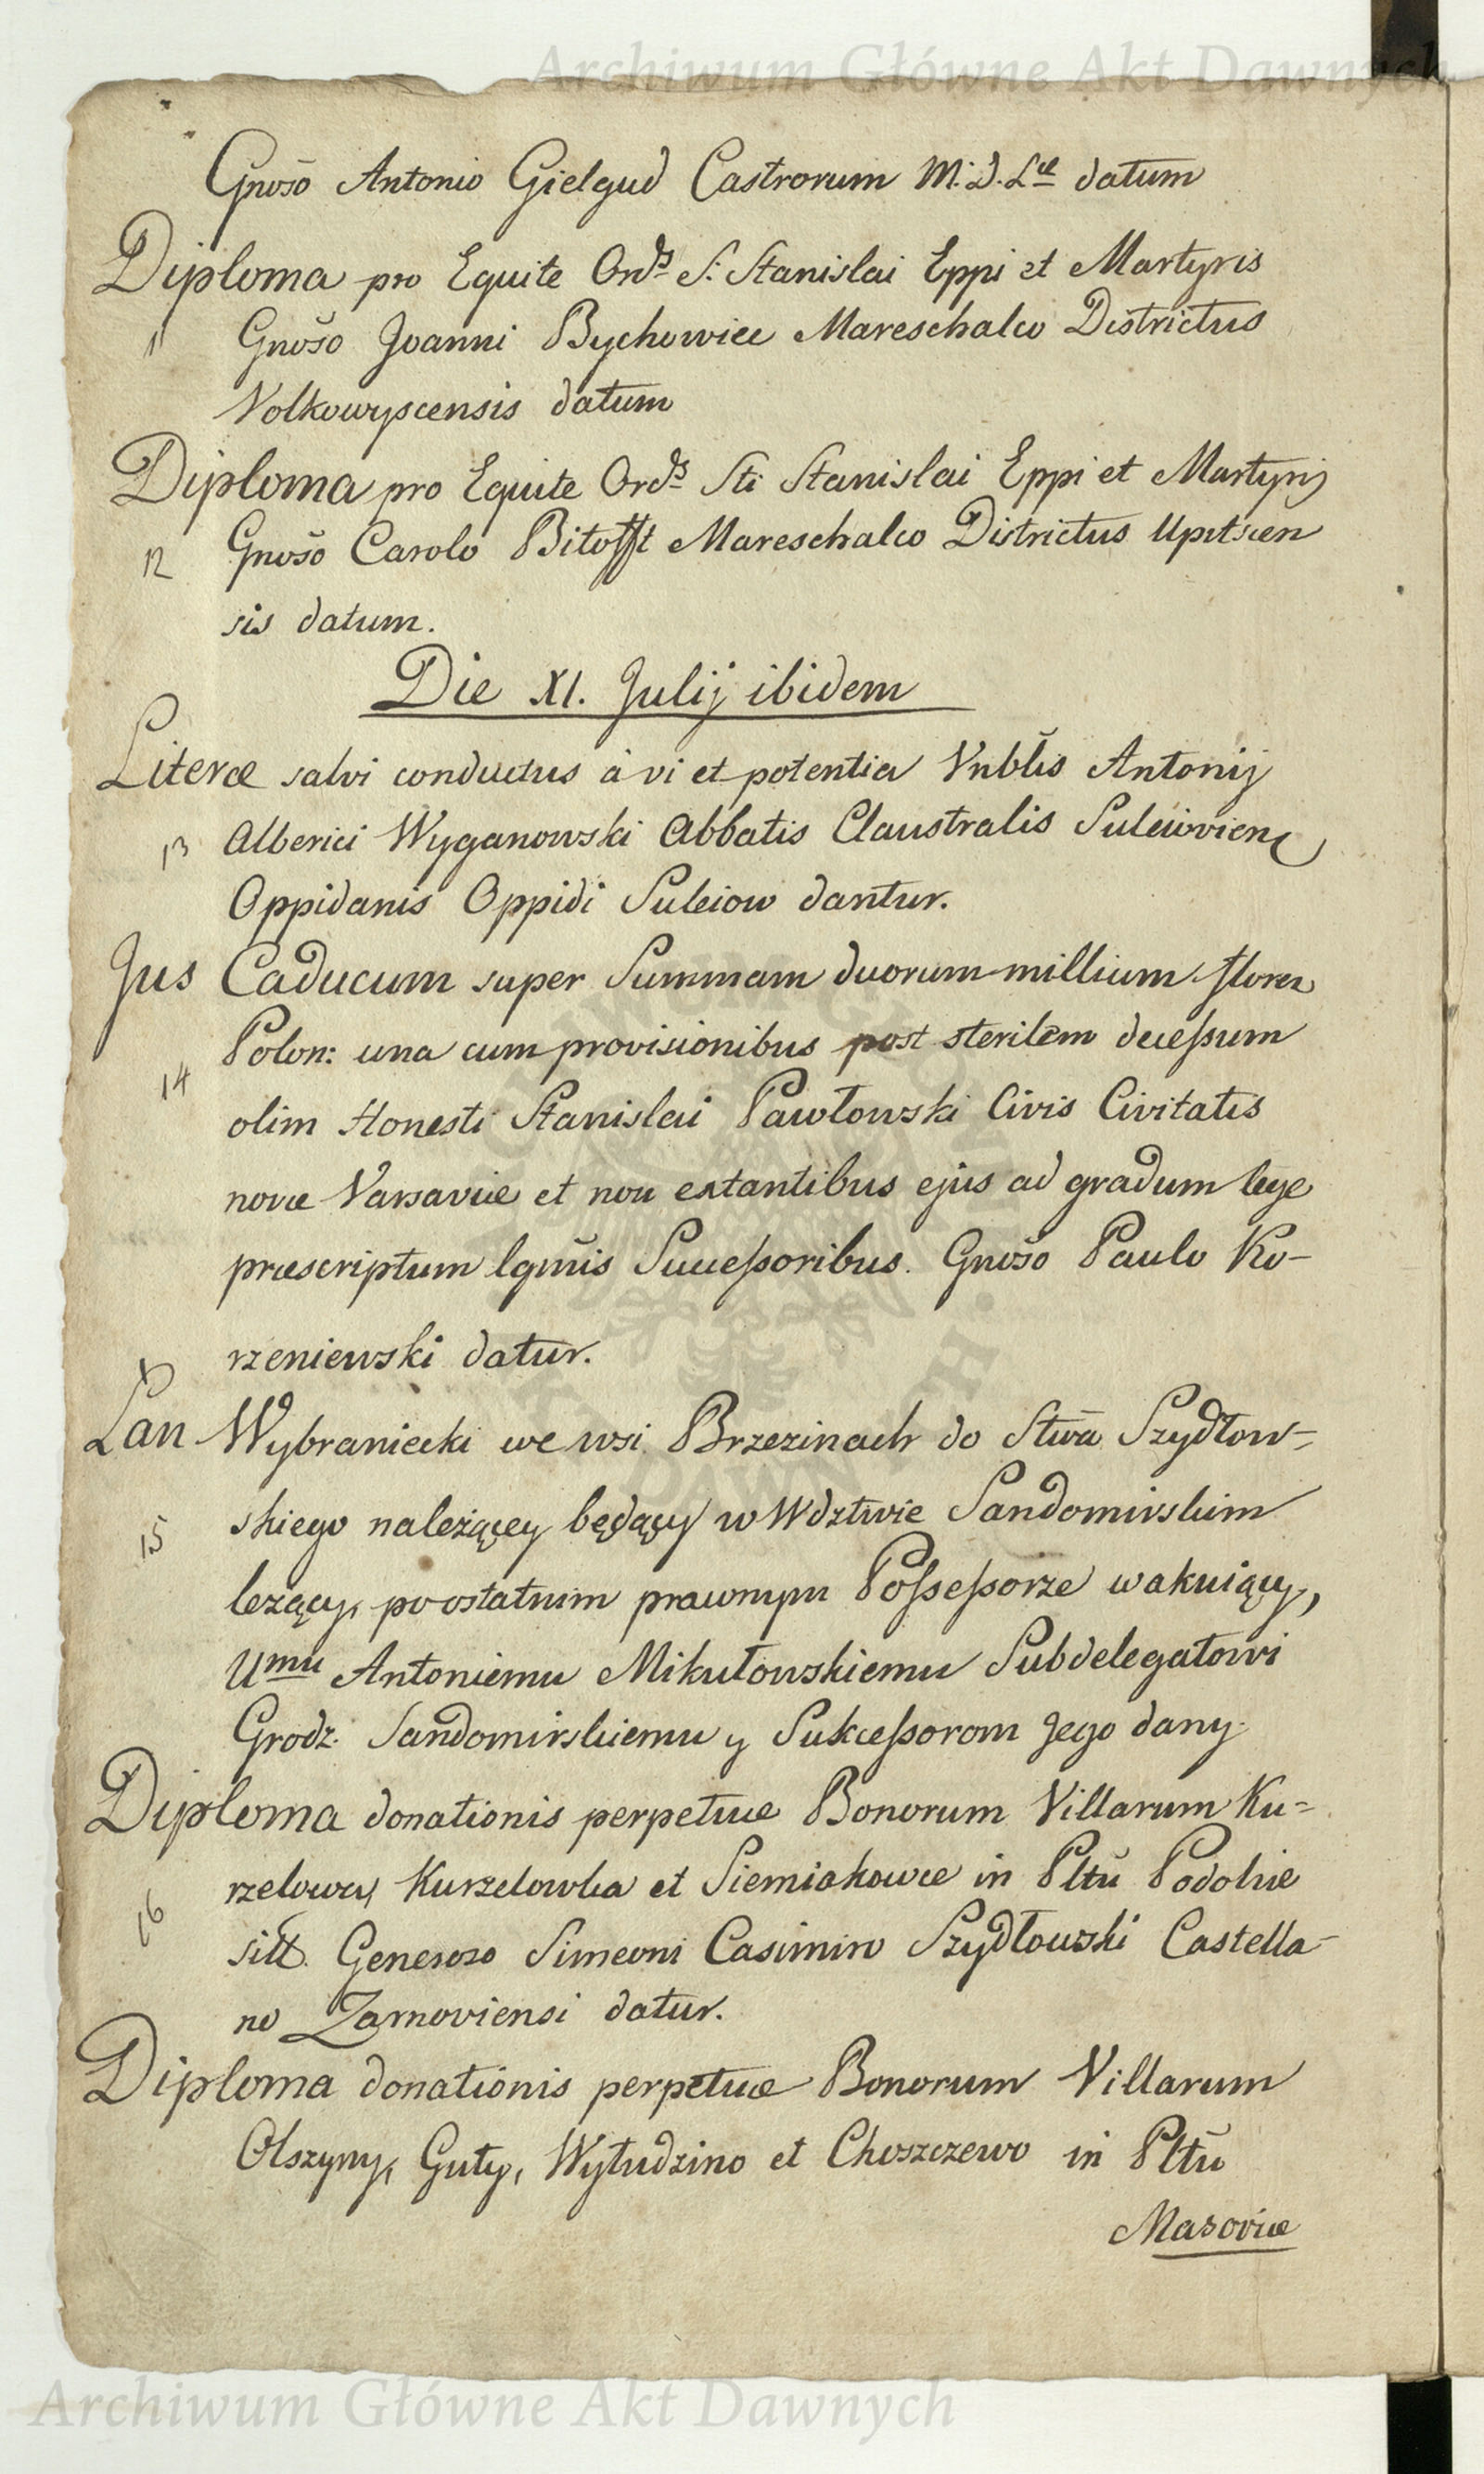 Archiwum Główne Akt Dawnych
Gnoso Antonio Gielgud Castrorum M. D. L. datum
Diploma pro Equite Ords S. Stanislai Eppi et Martyris
11 Gnoso Joanni Bychowiec Mareschalco Districtus
Volkowyscensis datum
Diploma pro Equite Ords Sti Stanislai Eppi et Martyris
12 Gnoso Carolo Bitofft Mareschalco Districtus Upitscen
sis datum.
Die XI. Julij ibidem
Literæ salvi conductus à vi et potentia Vnblis Antonij
13 Alberici Wyganowski Abbatis Claustralis Suleiovien
Oppidanis Oppidi Suleiow dantur.
Jus Caducum super Summam duorum millium floren
Polon: una cum provisionibus post sterilem decessum
14 olim Honesti Stanislai Pawłowski Civis Civitatis
novæ Varsaviæ et non extantibus ejus ad gradum lege
præscriptum lgmis Successoribus. Gnoso Paulo Ko-
rzeniewski datur.
Łan Wybraniecki we wsi Brzezinach do Stwa Szydłow=
15 skiego należącey będący w Wdztwie Sandomirskim
leżący, po ostatnim prawnym Possessorze wakuiący,
Umu Antoniemu Mikułowskiemu Subdelegatowi
Grodz. Sandomirskiemu y Sukcessorom Jego dany.
Diploma donationis perpetuæ Bonorum Villarum Ku=
rzelowy, Kurzelowka et Siemiakowce in Pltu Podoliæ
16 sitt. Generoso Simeoni Casimiro Szydłowski Castella-
no Zarnoviensi datur.
Diploma donationis perpetuæ Bonorum Villarum
Olszyny, Guty, Wyłudzino et Choszczewo in Pltu
Masoviæ
Archiwum Główne Akt Dawnych